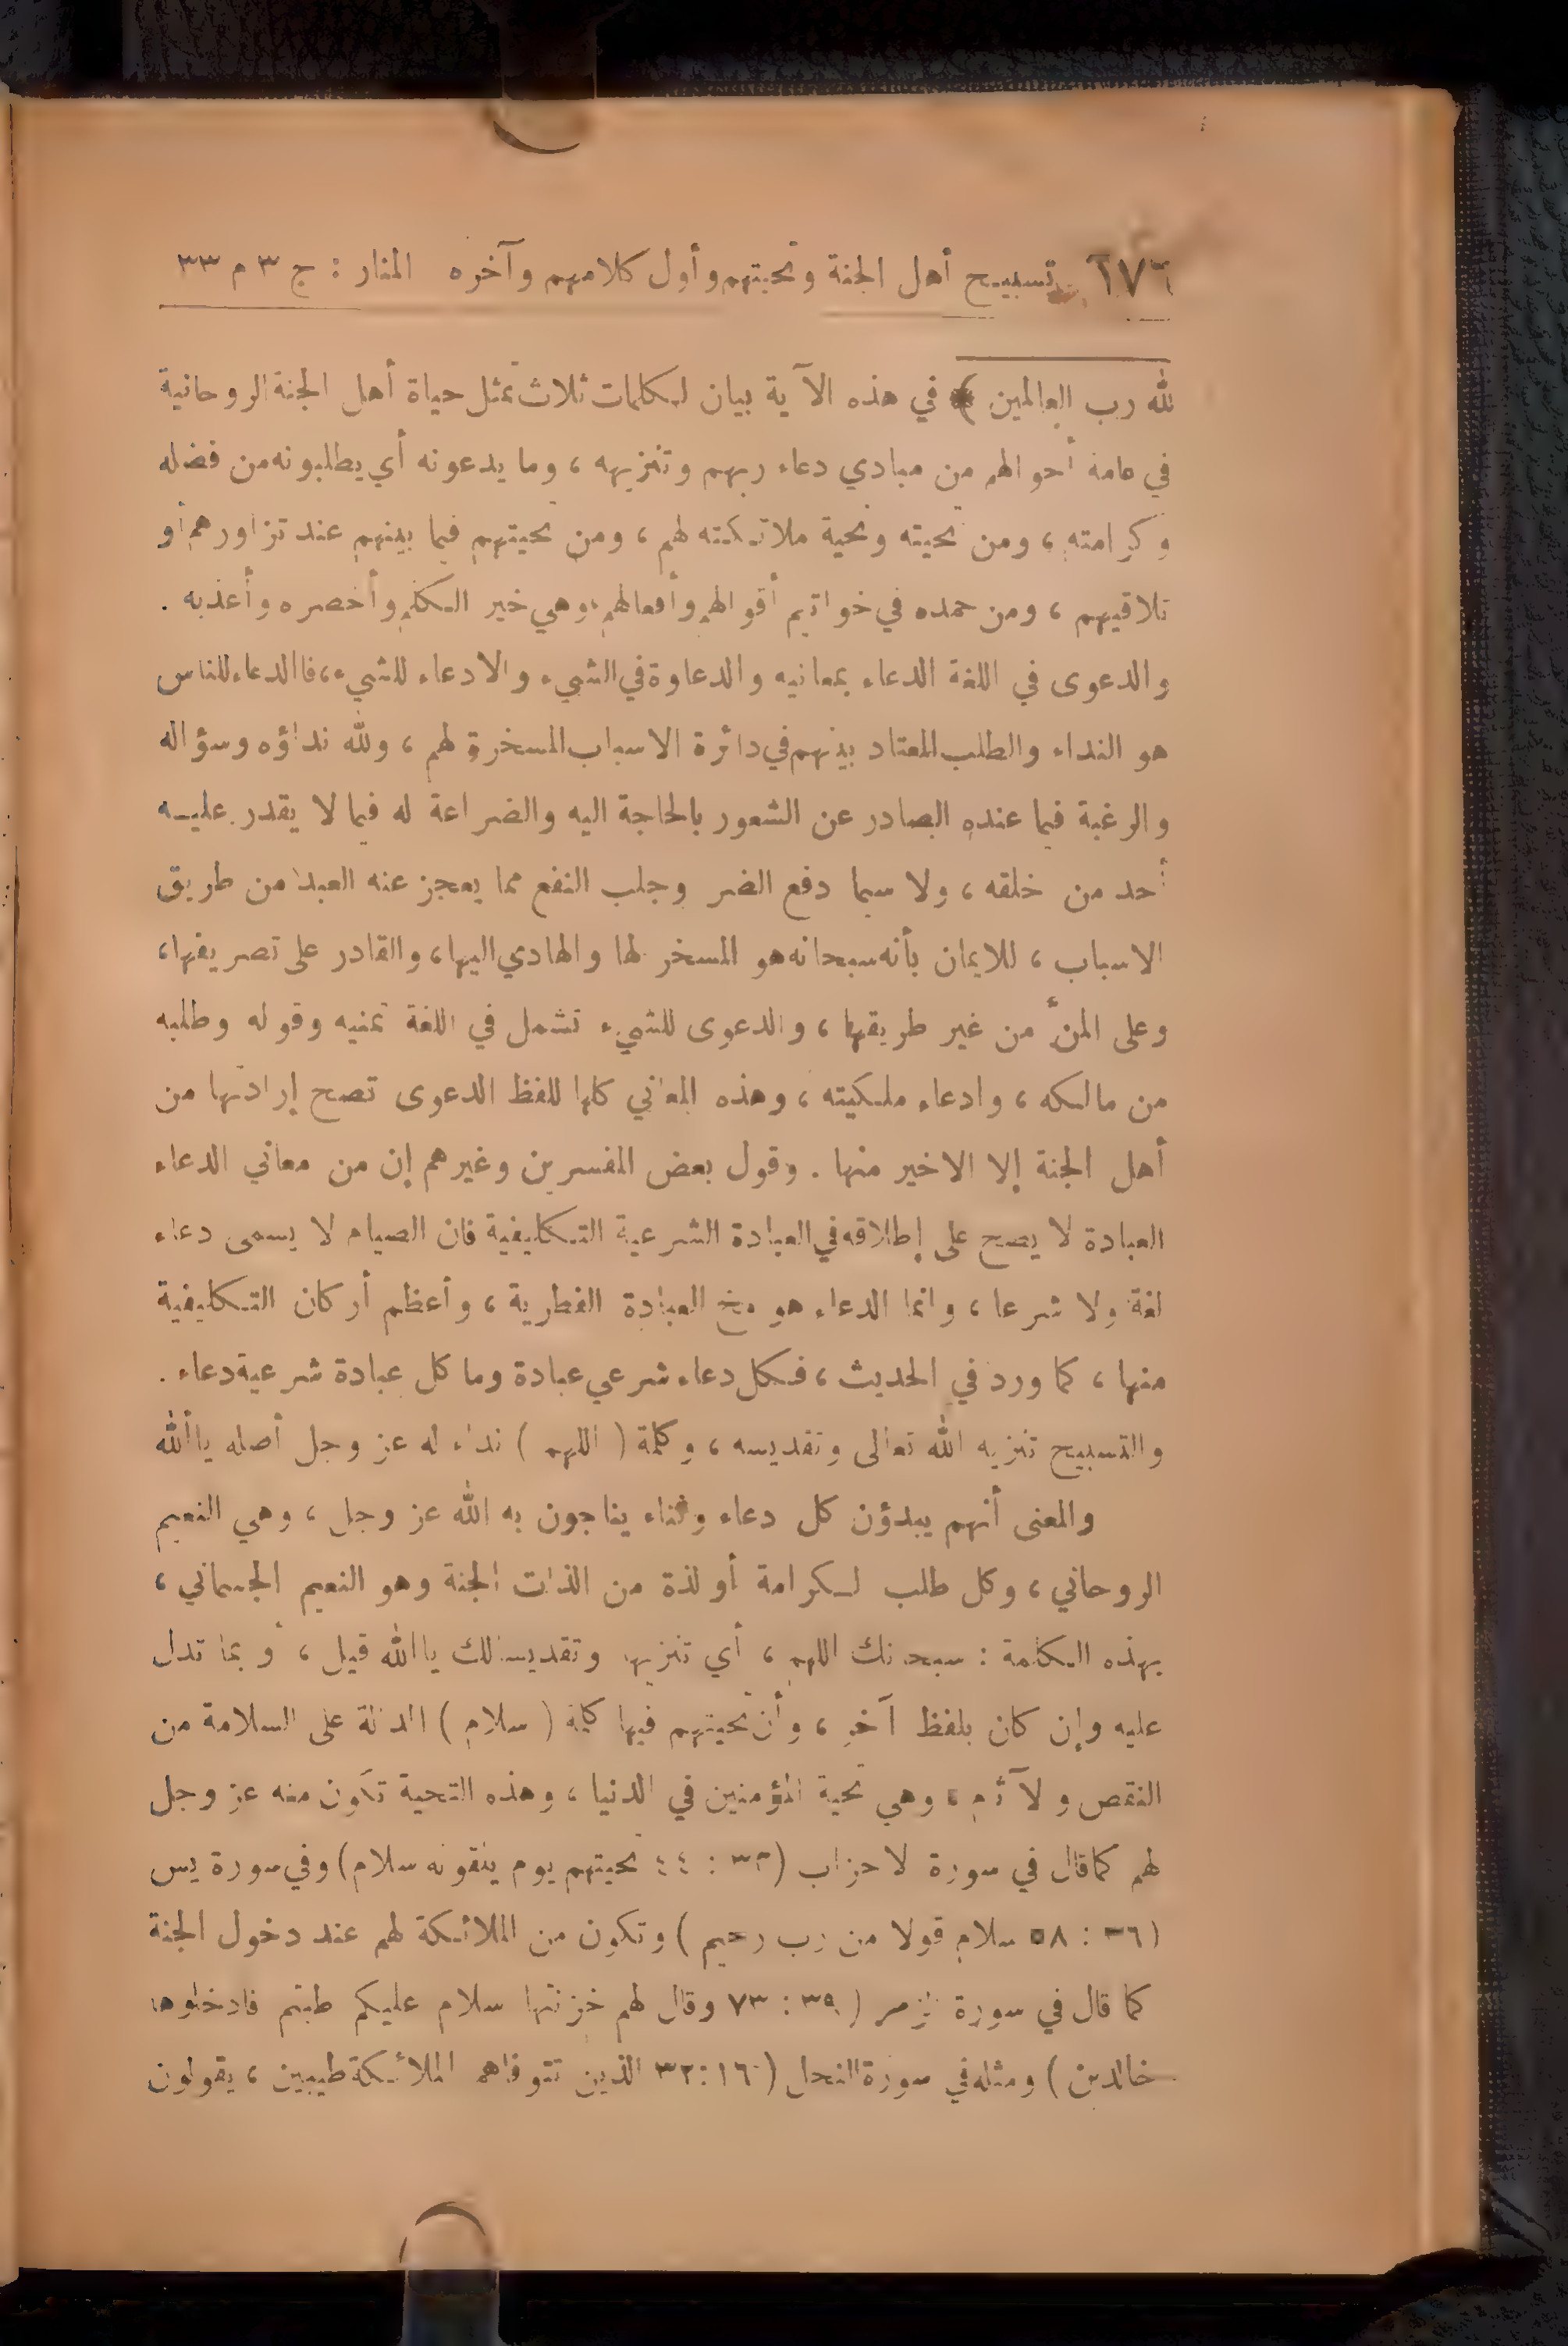 ١٧٦ تسبيح أهل الجنة وتحيتهم وأول كلامهم وآخره المنار : ج ٣ م ٣٣
لله رب العالمين ﴾ في هذه الآية بيان لكلمات ثلاث تمثل حياة أهل الجنة الروحانية
في عامة أحوالهم من مبادي دعاء ربهم وتنزيهه ، وما يدعونه أي يطلبونه من فضله
وكرامته ، ومن تحيته وتحية ملائكته لهم ، ومن تحيتهم فيما بينهم عند تزاورهم أو
تلاقيهم ، ومن حمده في خواتيم أقوالهم وأفعالهم ، وهي خير الكلم وأخصره وأعذبه .
والدعوى في اللغة الدعاء بمعانيه والدعاوة في الشيء والادعاء للشيء ، فالدعاء للناس
هو النداء والطلب المعتاد بينهم في دائرة الاسباب المسخرة لهم ، ولله نداؤه وسؤاله
والرغبة فيما عنده الصادر عن الشعور بالحاجة اليه والضراعة له فيما لا يقدر عليـه
أحد من خلقه ، ولا سيما دفع الضر وجلب النفع مما يعجز عنه العبد من طريق
الاسباب ، للايمان بأنه سبحانه هو المسخر لها والهادي اليها ، والقادر على تصريفها ،
وعلى المنّ من غير طريقها ، والدعوى للشيء تشمل في اللغة تمنيه وقوله وطلبه
من مالكه ، وادعاء ملكيته ، وهذه المعاني كلها للفظ الدعوى تصح إرادتها من
أهل الجنة إلا الاخير منها . وقول بعض المفسرين وغيرهم إن من معاني الدعاء
العبادة لا يصح على إطلاقه في العبادة الشرعية التكليفية فان الصيام لا يسمى دعاء
لغة ولا شرعا ، وانما الدعاء هو مخ العبادة الفطرية ، وأعظم أركان التكليفية
منها ، كما ورد في الحديث ، فكل دعاء شرعي عبادة وما كل عبادة شرعية دعاء .
والتسبيح تنزيه الله تعالى وتقديسه ، وكلمة ( اللهم ) نداء له عز وجل أصله يا ألله
والمعنى أنهم يبدؤن كل دعاء وثناء يناجون به الله عز وجل ، وهي النعيم
الروحاني ، وكل طلب لكرامة أو لذة من الذات الجنة وهو النعيم الجسماني ،
بهذه الكلمة : سبحانك اللهم ، أي تنزيها وتقديسا لك يا الله قيل ، أو بما تدل
عليه وإن كان بلفظ آخر ، وأن تحيتهم فيها كلمة ( سلام ) الدالة على السلامة من
النقص والآثم ، وهي تحية المؤمنين في الدنيا ، وهذه التحية تكون منه عز وجل
لهم كما قال في سورة الاحزاب ( ٣٣ : ٤٤ تحيتهم يوم يلقونه سلام ) وفي سورة يس
( ٣٦ : ٥٨ سلام قولا من رب رحيم ) وتكون من الملائكة لهم عند دخول الجنة
كما قال في سورة الزمر ( ٣٩ : ٧٣ وقال لهم خزنتها سلام عليكم طبتم فادخلوها
خالدين ) ومثله في سورة النحل ( ١٦ : ٣٢ الذين تتوفاهم الملائكة طيبين ، يقولون